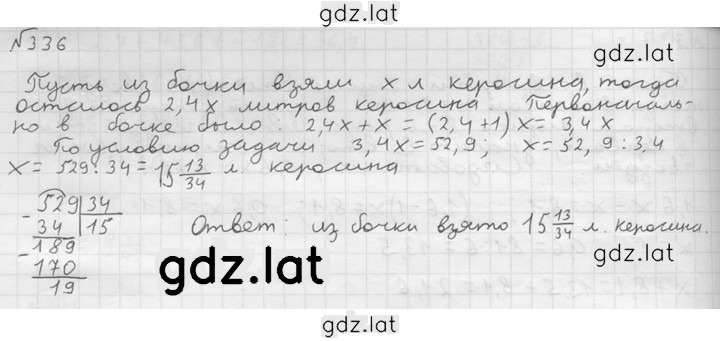 gdz.lat
№336
gdz.lat
Пусть из бочки взяли x л керосина, тогда
осталось 2,4x литров керосина. Первоначаль-
но в бочке было: 2,4x+x = (2,4+1)x = 3,4x
По условию задачи 3,4x=52,9; x=52,9:3,4
x = 529:34 = 15 13/34 л керосина
- 529 | 34
34 | 15
- 189
170
19
Ответ: из бочки взято 15 13/34 л. керосина.
gdz.lat
gdz.lat